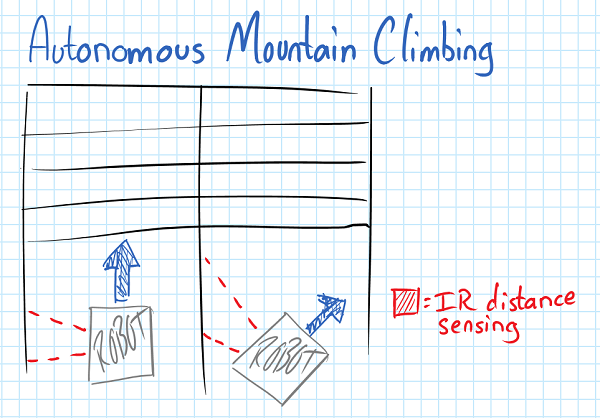 Autonomous Mountain Climbing
ROBOT
ROBOT
= IR distance
sensing